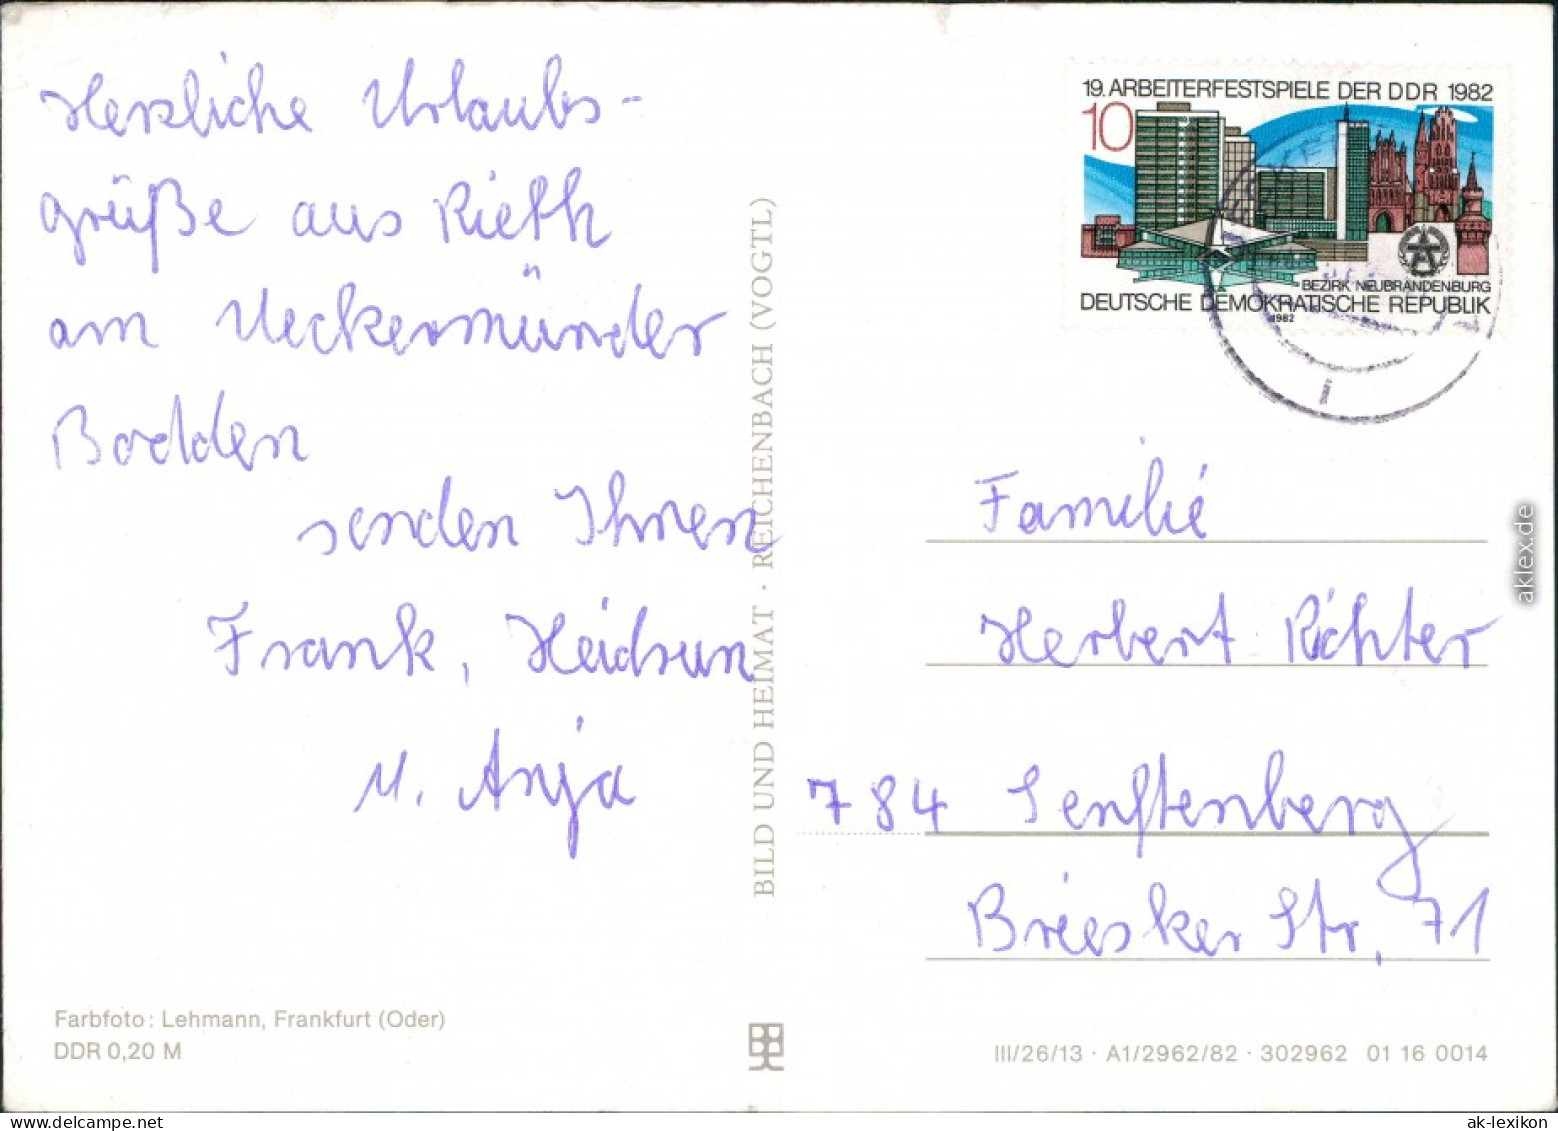 Herzliche Urlaubs-
grüße aus Rieth
am Ueckermünder
Bodden
senden Ihnen
Frank, Heidrun
u. Anja
Farbfoto: Lehmann, Frankfurt (Oder)
DDR 0,20 M
BILD UND HEIMAT · REICHENBACH (VOGTL)
19. ARBEITERFESTSPIELE DER DDR 1982
10
BEZIRK NEUBRANDENBURG
DEUTSCHE DEMOKRATISCHE REPUBLIK
1982
Familie
Herbert Richter
784 Senftenberg
Briesker Str. 71
III/26/13 · A1/2962/82 · 302962 01 16 0014
aklex.de
ak-lexikon